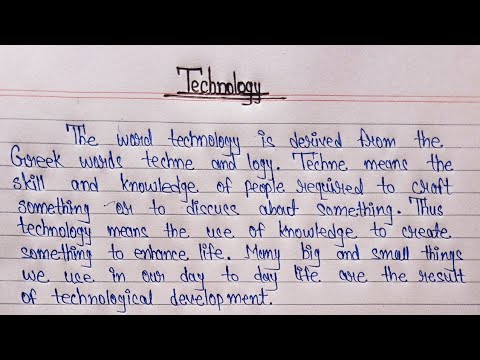 Technology
The word technology is derived from the
Greek words techne and logy. Techne means the
skill and knowledge of people required to craft
something or to discuss about something. Thus
technology means the use of knowledge to create
something to enhance life. Many big and small things
we use in our day to day life are the result
of technological development.